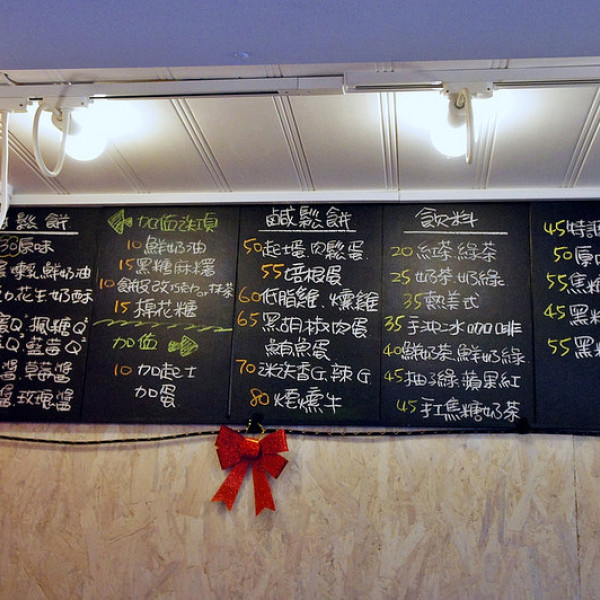 鬆餅
原味
鮮奶油
花生奶酥
楓糖Q
藍莓Q
醬.草莓醬
玫瑰醬
加值選項
10 鮮奶油
15 黑糖麻糬
10 餅皮改巧克力or抹茶
15 棉花糖
加值
10 加起士
加蛋
鹹鬆餅
50 起士蛋.肉鬆蛋
55 培根蛋
60 低脂雞.燻雞
65 黑胡椒肉蛋
鮪魚蛋
70 迷迭香G.辣G
80 煙燻牛
飲料
20 紅茶.綠茶
25 奶茶.奶綠
35 熱美式
35 手沖冰咖啡
40 鮮奶茶.鮮奶綠
45 柚子綠.蘋果紅
45 手工焦糖奶茶
45 特調
50 原味
55 焦糖
45 黑糖
55 黑糖